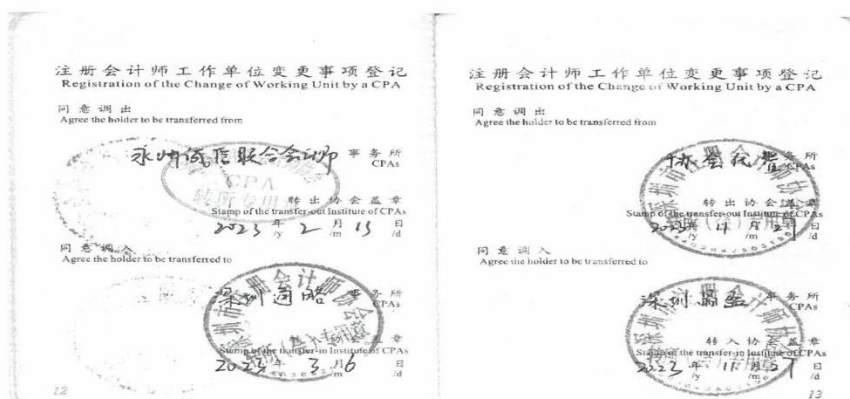 注册会计师工作单位变更事项登记
Registration of the Change of Working Unit by a CPA
同意调出
Agree the holder to be transferred from
永州诚信联合会计师 事务所
CPAs
CPA
转所专用
转出协会盖章
Stamp of the transfer-out Institute of CPAs
2023 年 2 月 13 日
/y /m /d
同意调入
Agree the holder to be transferred to
深圳 事务所
CPAs
深圳市注册会计师协会
Stamp of the transfer-in Institute of CPAs
2023 年 3 月 6 日
/y /m /d
12
注册会计师工作单位变更事项登记
Registration of the Change of Working Unit by a CPA
同意调出
Agree the holder to be transferred from
协会代管 事务所
CPAs
深圳市注册会计师协会
转出协会盖章
Stamp of the transfer-out Institute of CPAs
2023 年 11 月 27 日
/y /m /d
同意调入
Agree the holder to be transferred to
深圳 事务所
CPAs
深圳市注册会计师协会
转入协会盖章
Stamp of the transfer-in Institute of CPAs
2023 年 11 月 27 日
/y /m /d
13